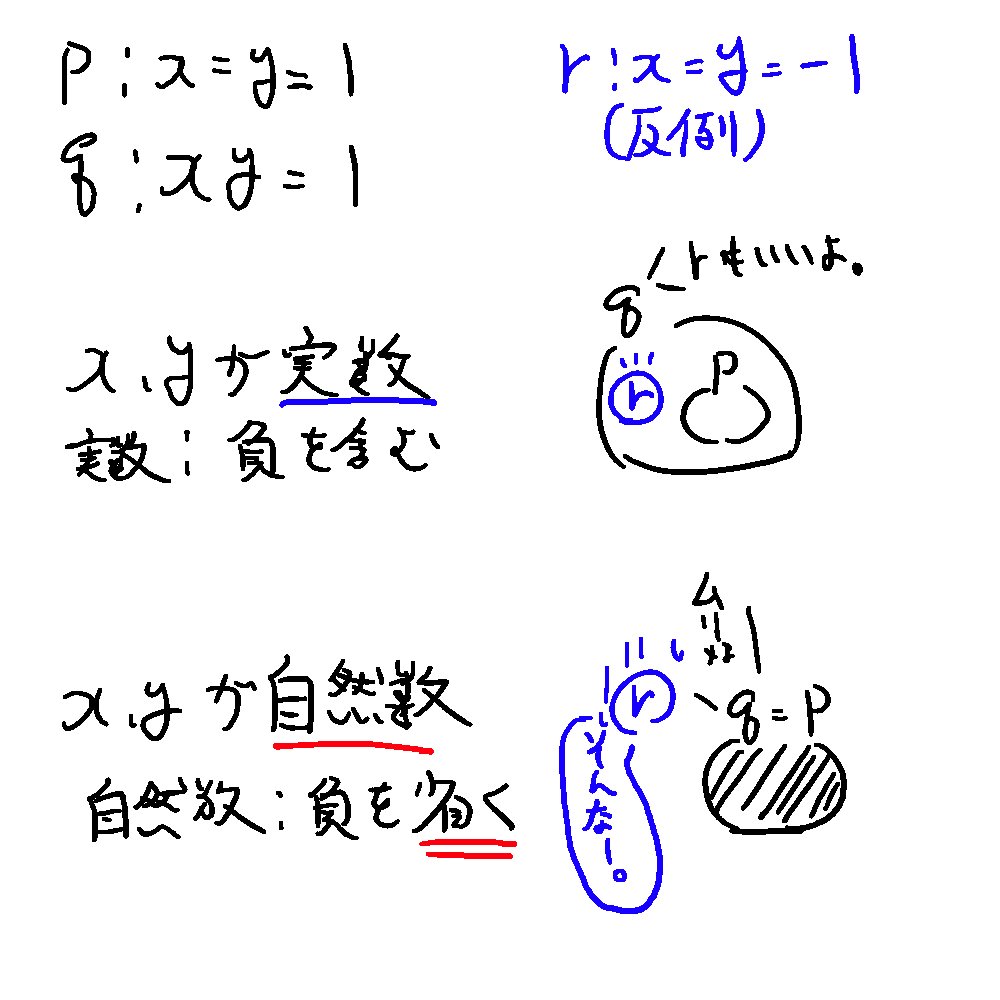 p:x=y=1
q:xy=1
r:x=y=-1
(反例)
x,yが実数
実数:負を含む
q
rもいいよ。
r
P
x,yが自然数
自然数:負を省く
ムリ
r
q=P
そんなー。